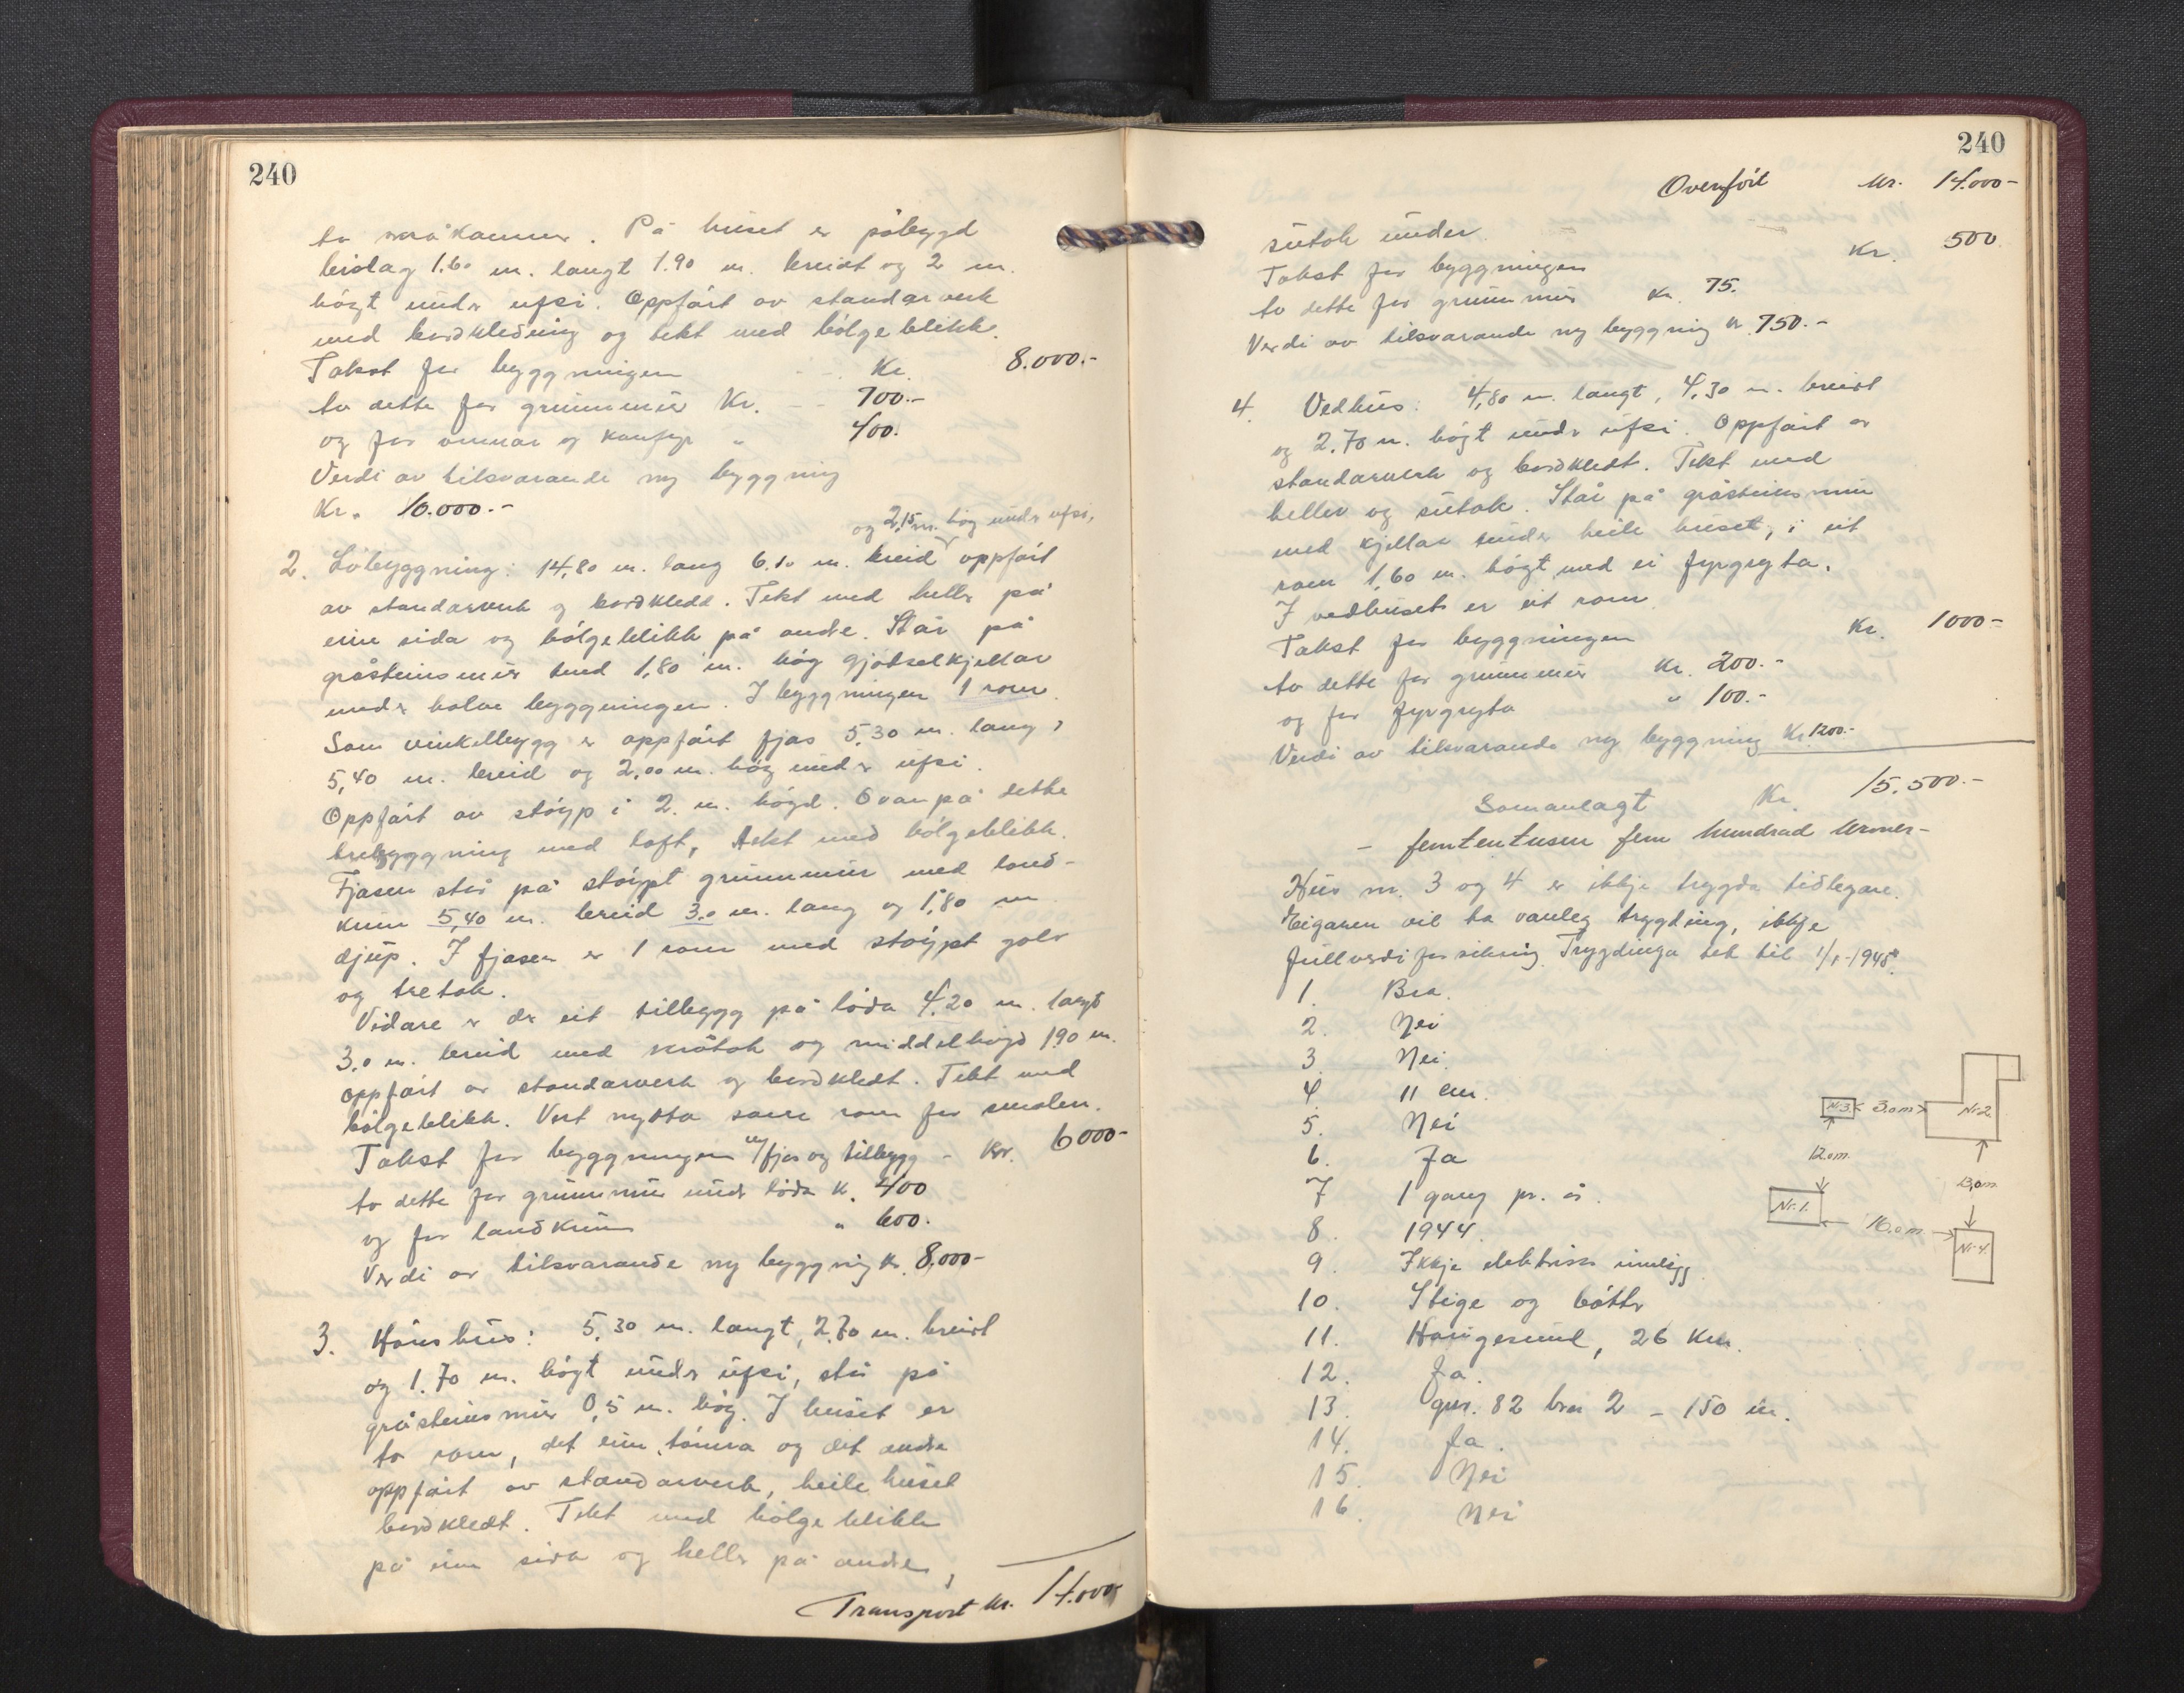 240
to små kammer. På huset er påbygd
bislag 1.60 m. langt 1.90 m. breidt og 2 m.
högt under ufsi. Oppfört av standarverk
med bordkledning og tekt med bölgeblikk.
Takst for byggningen Kr. 8.000.-
Av dette for grunnmur Kr. 700.-
og for omnar og komfyr " 400.
Verdi av tilsvarande ny byggning
Kr. 10.000.-
og 2,15 m. hög under ufsi,
2. Löbyggning: 14,80 m. lang 6.10 m. breid oppfört
av standarverk og bordkledd. Tekt med heller på
eine sida og bölgeblikk på andre. Står på
gråsteinsmur med 1,80 m. hög gjödselkjellar
under halve byggningen. I byggningen 1 rom.
Som vinkelbygg er oppfört fjøs 5,30 m. lang,
5,40 m. breid og 2,00 m. hög under ufsi.
Oppfört av stöyp i 2. m. högd. Ovanpå dette
trebyggning med loft, tekt med bölgeblikk.
Fjösen står på stöypt grunnmur med land-
kum 5,40 m. breid 3,0 m. lang og 1,80 m
djup. I fjösen er 1 rom med stöypt golv
og tretak.
Vidare er der eit tillbygg på löda 4,20 m. langt
3,0 m. breid med skråtak og middelhögd 1.90 m.
oppfört av standarverk og bordkledt. Tekt med
bölgeblikk. Vert nytta som rom for smalen.
Takst for byggningen m/fjös og tillbygg - Kr. 6000-
Av dette for grunnmur under löda K. 400
og for landkum " 600.
Verdi av tilsvarande ny byggning Kr. 8,000-
3. Hönshus: 5,30 m. langt, 2,70 m. breidt
og 1.70 m. högt under ufsi, står på
gråsteinsmur 0,5 m. hög. I huset er
to rom, det eine tömra og det andre
oppfört av standarverk, heile huset
bordkledt. Tekt med bölgeblikk
på eine sida og heller på andre,
Transport kr. 14.000-
240
Overfört kr. 14.000-
sutak under.
Takst for byggningen Kr. 500
Av dette for grunnmur Kr. 75.
Verdi av tilsvarande ny byggning Kr 750.-
4. Vedhus: 4,80 m. langt, 4,30 m. breidt
og 2.70 m. högt under ufsi. Oppfört av
standarverk og bordkledt. Tekt med
heller og sutak. Står på gråsteinsmur
med kjellar under heile huset, i eit
rom 1,60 m. högt med ei fyrgryta.
I vedhuset er eit rom.
Takst for byggningen Kr. 1000-
Av dette for grunnmur Kr. 200.-
og for fyrgryta " 100.-
Verdi av tilsvarande ny byggning Kr. 1200.-
Samanlagt Kr. 15.500.-
- femtentusen fem hundrad kroner-
Hus nr. 3 og 4 er ikkje trygda tidlegare.
Eigaren vil ha vanleg trygding, ikkje
fullverdiforsikring. Trygdinga tek til 1/1-1945.
1. Bra.
2. Nei
3. Nei.
4. 11 cm.
5. Nei
6. Ja
7 1 gang pr. år.
8. 1944.
9. Ikkje elektrisk innlegg
10. Stige og bötter
11. Haugesund, 26 Km.
12. Ja.
13. gnr. 82 bnr 2 - 150 m.
14. Ja.
15. Nei
16. Nei
Nr. 3. 3.0 m Nr. 2.
12.0 m.
13,0 m
Nr. 1. 16.0 m. Nr. 4.